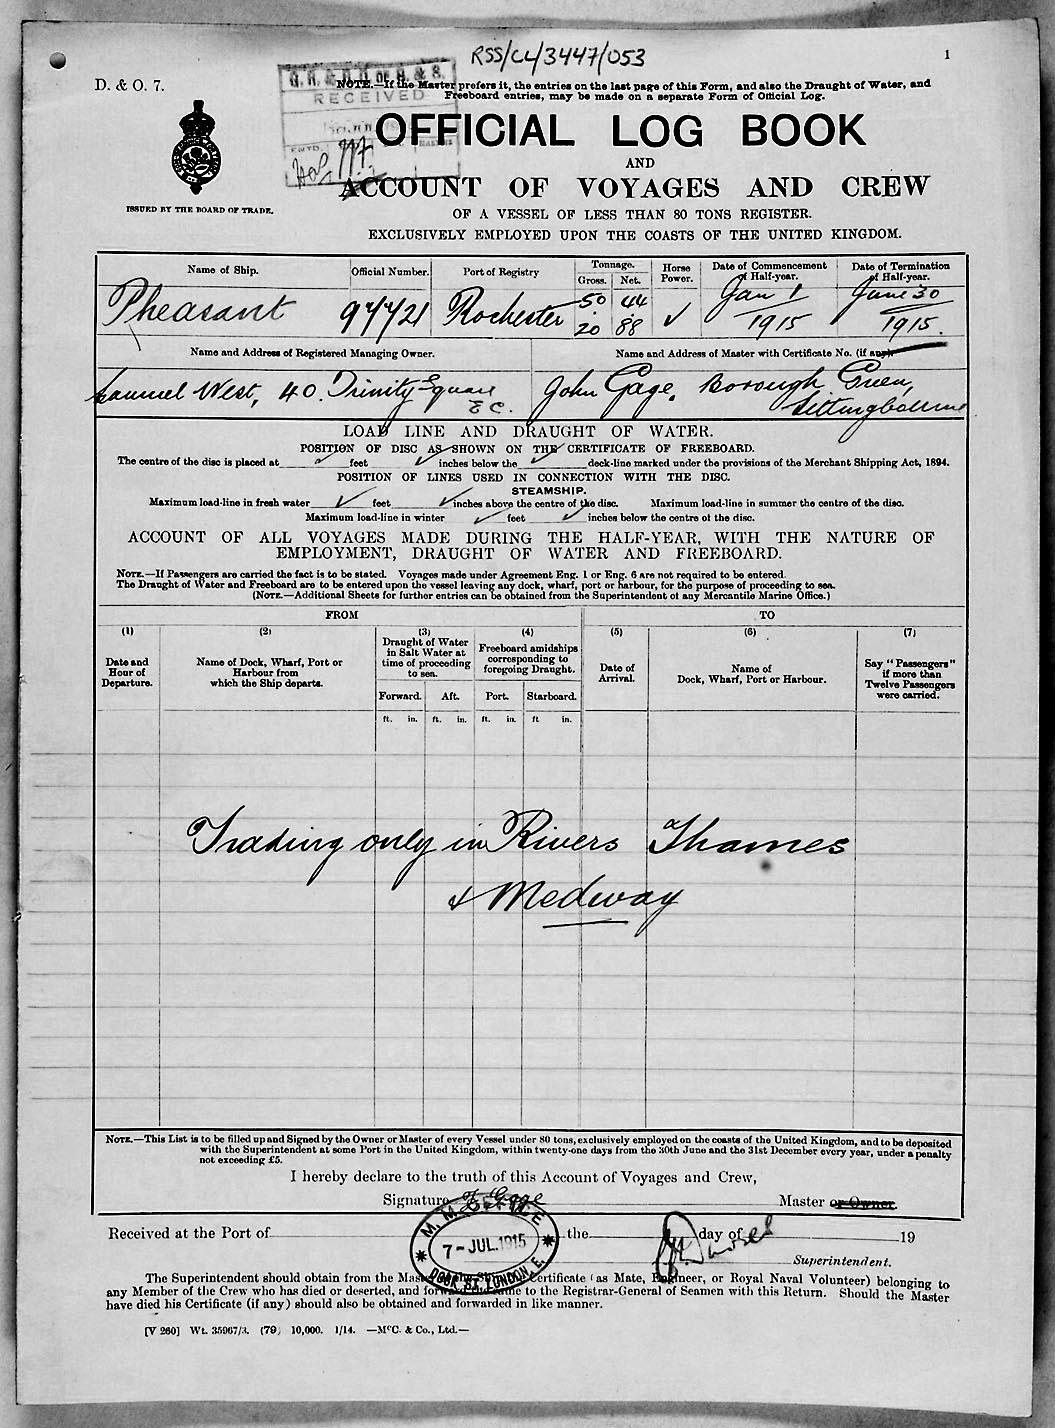 RSS/CL/3447/053
1
D. & O. 7.
NOTE.—If the Master prefers it, the entries on the last page of this Form, and also the Draught of Water, and
Freeboard entries, may be made on a separate Form of Official Log.
RECEIVED
OFFICIAL LOG BOOK
AND
ACCOUNT OF VOYAGES AND CREW
ISSUED BY THE BOARD OF TRADE.
OF A VESSEL OF LESS THAN 80 TONS REGISTER.
EXCLUSIVELY EMPLOYED UPON THE COASTS OF THE UNITED KINGDOM.
Name of Ship. Official Number. Port of Registry Tonnage. Gross. Net. Horse Power. Date of Commencement of Half-year. Date of Termination of Half-year.
Pheasant 97721 Rochester 50 . 20 44 . 88 ✓ Jan 1 / 1915 June 30 / 1915.
Name and Address of Registered Managing Owner. Name and Address of Master with Certificate No. (if any).
Samuel West, 40. Trinity Square E C. John Gage, Borough Green, Sittingbourne
LOAD LINE AND DRAUGHT OF WATER.
POSITION OF DISC AS SHOWN ON THE CERTIFICATE OF FREEBOARD.
The centre of the disc is placed at ✓ feet ✓ inches below the ✓ deck-line marked under the provisions of the Merchant Shipping Act, 1894.
POSITION OF LINES USED IN CONNECTION WITH THE DISC.
STEAMSHIP.
Maximum load-line in fresh water ✓ feet ✓ inches above the centre of the disc. Maximum load-line in summer the centre of the disc.
Maximum load-line in winter ✓ feet ✓ inches below the centre of the disc.
ACCOUNT OF ALL VOYAGES MADE DURING THE HALF-YEAR, WITH THE NATURE OF
EMPLOYMENT, DRAUGHT OF WATER AND FREEBOARD.
NOTE.—If Passengers are carried the fact is to be stated. Voyages made under Agreement Eng. 1 or Eng. 6 are not required to be entered.
The Draught of Water and Freeboard are to be entered upon the vessel leaving any dock, wharf, port or harbour, for the purpose of proceeding to sea.
(NOTE.—Additional Sheets for further entries can be obtained from the Superintendent of any Mercantile Marine Office.)
FROM TO
(1) (2) (3) (4) (5) (6) (7)
Date and Hour of Departure. Name of Dock, Wharf, Port or Harbour from which the Ship departs. Draught of Water in Salt Water at time of proceeding to sea. Freeboard amidships corresponding to foregoing Draught. Date of Arrival. Name of Dock, Wharf, Port or Harbour. Say "Passengers" if more than Twelve Passengers were carried.
Forward. Aft. Port. Starboard.
ft. in. ft. in. ft. in. ft in.
Trading only in Rivers Thames
& Medway
NOTE.—This List is to be filled up and Signed by the Owner or Master of every Vessel under 80 tons, exclusively employed on the coasts of the United Kingdom, and to be deposited
with the Superintendent at some Port in the United Kingdom, within twenty-one days from the 30th June and the 31st December every year, under a penalty
not exceeding £5.
I hereby declare to the truth of this Account of Voyages and Crew,
Signature J Gage Master or Owner.
Received at the Port of the day of 19
M. M. OFFICE
7-JUL.1915
DOCK ST. LONDON, E.
Superintendent.
The Superintendent should obtain from the Master Certificate (as Mate, Engineer, or Royal Naval Volunteer) belonging to
any Member of the Crew who has died or deserted, and forward same to the Registrar-General of Seamen with this Return. Should the Master
have died his Certificate (if any) should also be obtained and forwarded in like manner.
[V 260] Wt. 35967/3. (79) 10,000. 1/14. —McC. & Co., Ltd.—